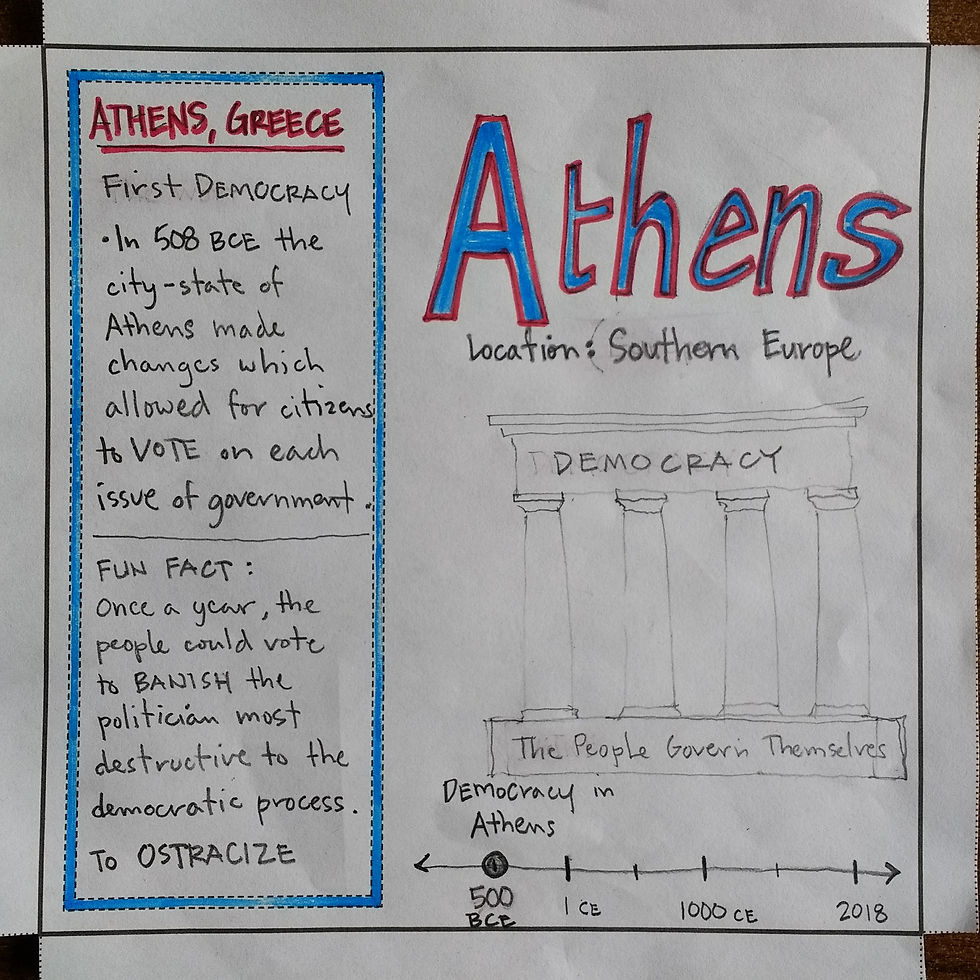 ATHENS, GREECE
First DEMOCRACY
• In 508 BCE the
city-state of
Athens made
changes which
allowed for citizens
to VOTE on each
issue of government.
FUN FACT:
Once a year, the
people could vote
to BANISH the
politician most
destructive to the
democratic process.
To OSTRACIZE
Athens
Location: Southern Europe
DEMOCRACY
The People Govern Themselves
DEMOCRACY in
Athens
500
BCE
1 CE
1000 CE
2018